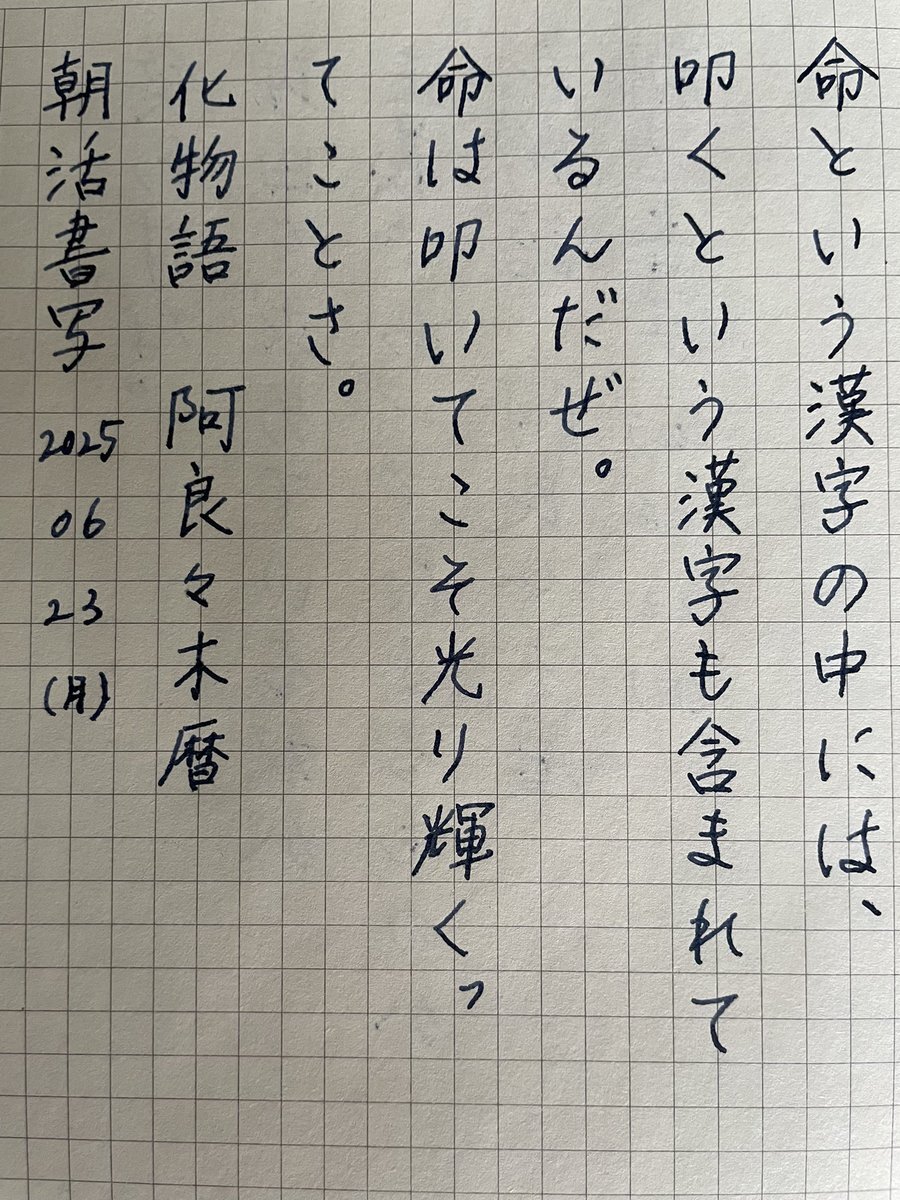 命という漢字の中には、
叩くという漢字も含まれて
いるんだぜ。
命は叩いてこそ光り輝くっ
てことさ。
化物語 阿良々木暦
朝活書写 2025 06 23 (月)